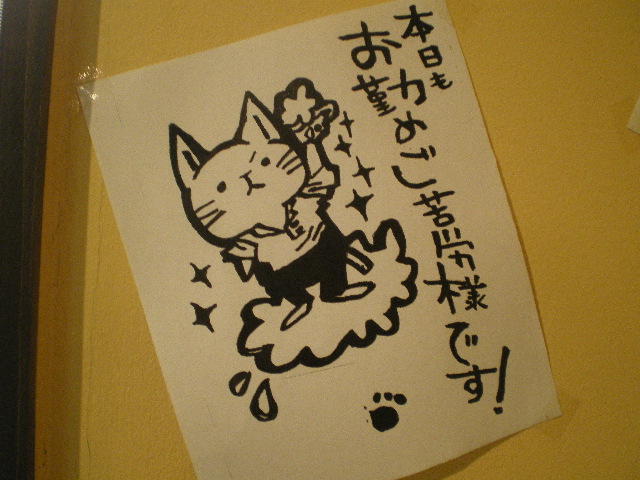 本日も
お勤めご苦労様です!